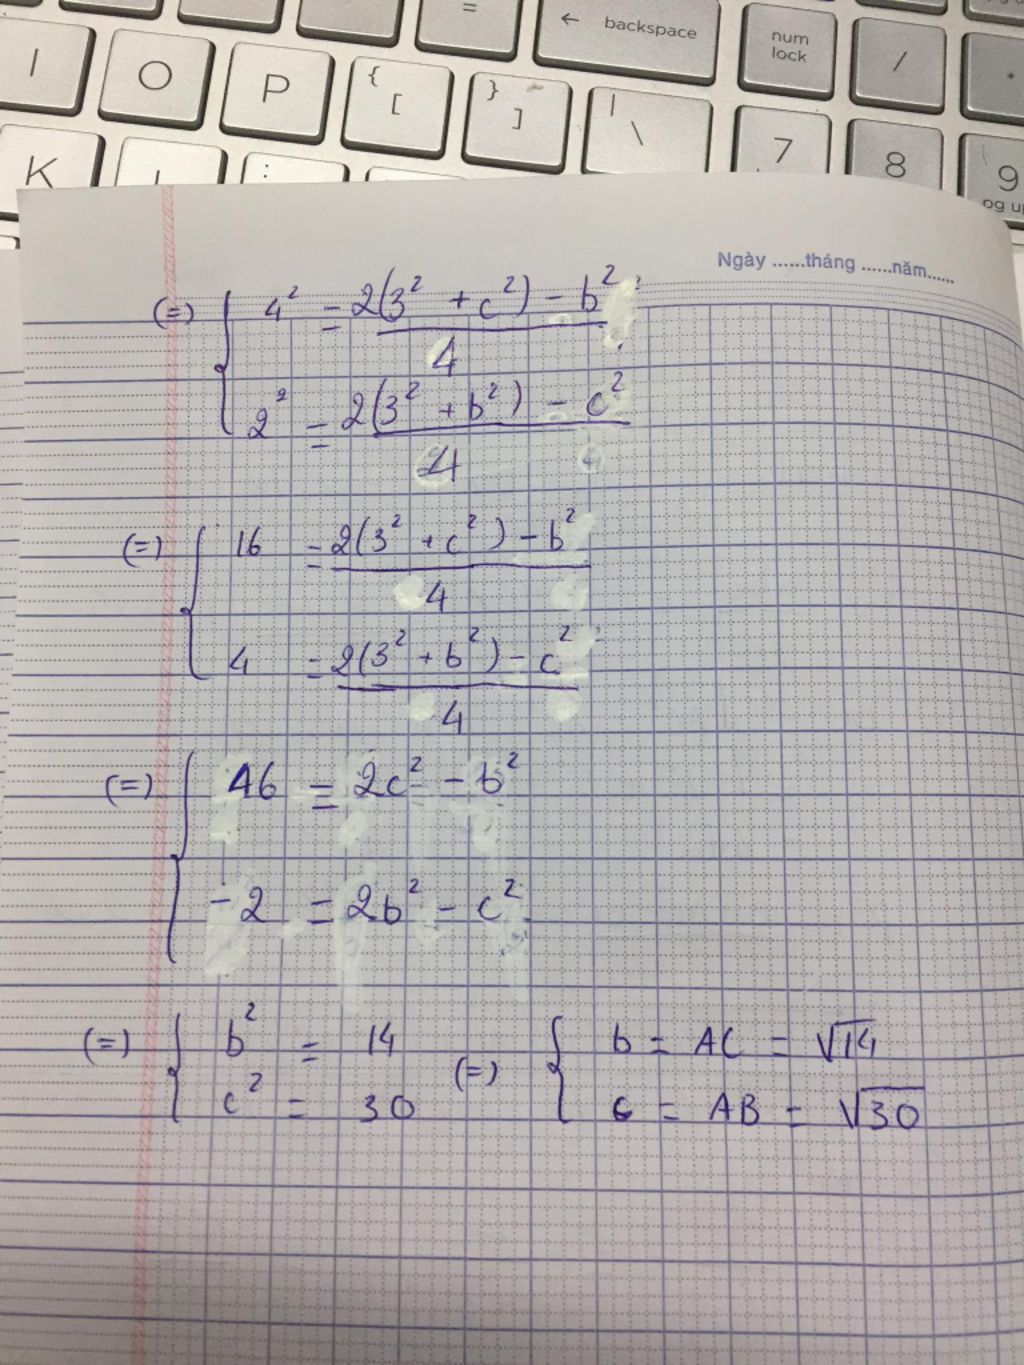 =
← backspace
num lock
/
*
I O P { [ } ] | \ 7 8 9 pg up
K L :
Ngày ......tháng ......năm.....
(=) { 4² = 2(3² + c²) - b² / 4
2² = 2(3² + b²) - c² / 4
(=) { 16 = 2(3² + c²) - b² / 4
4 = 2(3² + b²) - c² / 4
(=) { 46 = 2c² - b²
-2 = 2b² - c²
(=) { b² = 14 (=) { b = AC = √14
c² = 30 c = AB = √30